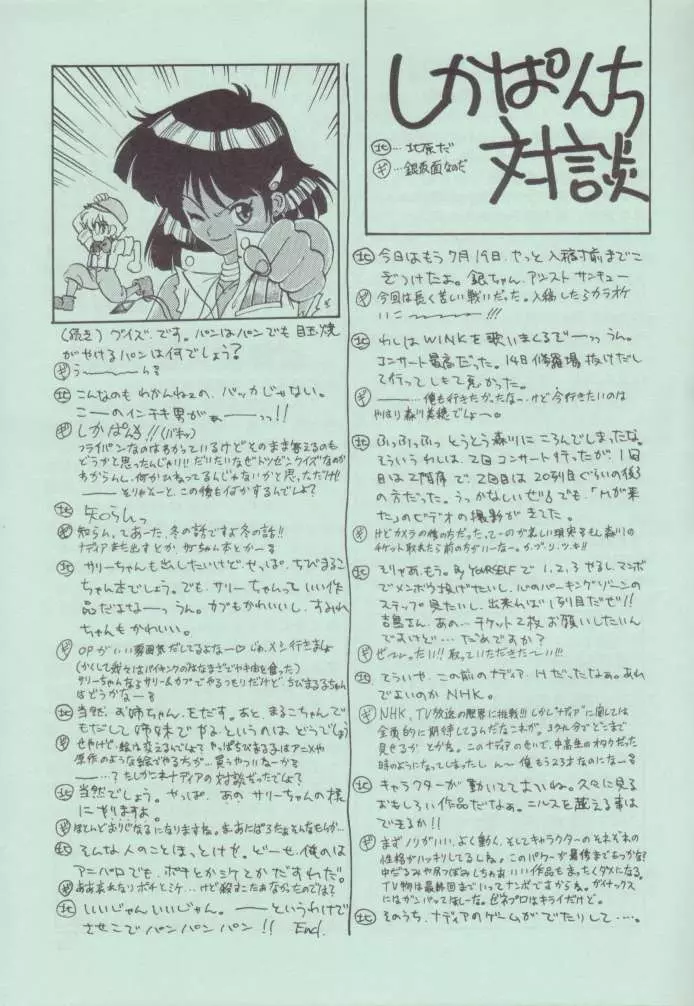 しかぱんち
対談
北…北原だ
ギ…銀仮面なのだ
北 今日はもう7月19日、やっと入稿寸前までこ
ぎつけたよ。銀ちゃん、アシスト サンキュー
ギ 今回は長く苦しい戦いだった。入稿したらカラオケ
いこーーー!!!
北 わしはWINKを歌いまくるでーっっ うん。
コンサート最高だった。14日修羅場抜けだし
て行ってしもて良かった。
ギ ーーー、俺も行きたかったなー、けど今行きたいのは
やはり森川美穂でしょーう。
北 ふっふっふっ とうとう森川にころんでしまったな。
そういうわしは、2回コンサート行ったが、1回
目は2階席で、2回目は20列目ぐらいの後3
の方だった。うっかなしいぜ!! でも、「Mが来
た」のビデオの撮影がきてた。
ギ けどカメラの後の方だった、てーのが悲しい現実
チケット取れたら前の方がいーなー。
北 そりゃあ、もう。By YOURSELFで1,2,3やるし、マンボ
でメンボウ投げたいし、心のパーキングゾーンの
ステップ見たいし、出来れば1列目だぜ!!
吉恵さん、あの…チケット2枚お願いしたいん
ですけど…だめですか?
ギ ぜーったい!! 取っていただきたーい!!!
北 そういや、この前のナディア、Hだったなぁ。あれ
でよいのかNHK。
ギ NHK、TV放送の限界に挑戦!! しかし"ナディア"に関しては
全員的に期待してるんだなこれが。
見せるか とかね。このナディアのせいで、中高生のオタクだった
時のようになってしまったし んー 俺もう23才なのになーる
北 キャラクターが動いててよいね。久々に見る
おもしろい作品だなぁ。ニルスを越える事は
できるか!!
ギ まずノリがいい、よく動く、そしてキャラクターのそれぞれの
性格がハッキリしてるしね。このパワーが最後まであっかな?
中だるみや尻つぼみしちゃあ いい作品もまったくダメになる。
TV物は最終回までいってナンボですからね。ガイナックス
にはガンバってほしーな。ゼネプロはキライだけど。
北 そのうち、ナディアのゲームがでたりして…。
(続き)クイズです。パンはパンでも目玉焼
がやけるパンは何でしょう?
ギ うーーーんる
北 こんなのもわかんねェの、バッカじゃない。
こーのインチキ男がぁーっっ!!
ギ しかぱんち!!(バキッ)
フライパンなのはわかっているけどそのまま答えるのも
どうかと思ったんじゃい!! だいたいなぜトツゼンクイズなのか
わからんし、何かひねってるんじゃないかと思っただけ!!
ーーーそりゃそーと、この後も何かするんでしょ?
北 知らんっ
ギ 知らん、てあーた、冬の話ですよ冬の話!!
ナディアまた出すとか、サリーちゃん本とかーる
北 サリーちゃんも出したいけど、やっぱ、ちびまるこ
ちゃん本でしょう。でも、サリーちゃんっていい作
品だよなーっ うん。カブもかわいいし、すみれ
ちゃんもかわいい。
ギ OPがいい雰囲気だしてるよなー♡ じゃ、メシ行きましょ
(かくして我々はバイキングのみなまざでヤキ肉を食った)
サリーちゃんならサリー&カブでやるつもりだけど、ちびまる子ちゃん
はどうかなーる
北 当然、お姉ちゃん、をだす。あと、まるこちゃんで
もだして姉妹でヤるというのはどうでしょう
ギ せやけど、絵は変えるんでしょ? やっぱちびまる子はアニメや
原作のような絵でやる方が…買うやついなーる
ーーー…? たしかこれナディアの対談だったでしょ?
北 当然でしょう。やっぱ、あのサリーちゃんの様
にやりますよ。
ギ ほとんどおりじなるになりますね。まーあにぱろだぁそんなもんか…
北 そんな人のことほっとけを、どーせ、俺のは
アニパロでも、ポチとかミケとかだすわだ。
ギ ああ哀れなりポチとミケ…けど殺すこたぁなかったのでは?
北 いいじゃんいいじゃん。ーーーというわけで
させこでパンパンパン!! End.